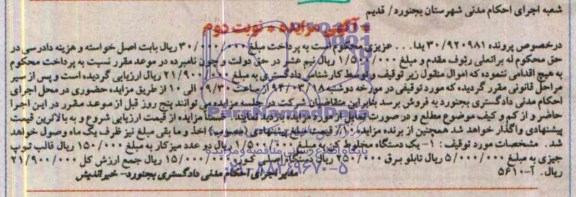 شعبه اجرای احکام مدنی شهرستان بجنورد/ قدیم
آگهی مزایده - نوبت دوم
درخصوص پرونده ۳۰/۹۲۰۹۸۱ یدا... عزیزی محکوم است به پرداخت مبلغ ۳۰/۰۰۰/۰۰۰ ریال بابت اصل خواسته و هزینه دادرسی در
حق محکوم له براتعلی رئوف مقدم و مبلغ ۱/۵۰۰/۰۰۰ ریال نیم عشر در حق دولت و چون نامبرده در موعد مقرر نسبت به پرداخت محکوم
به هیچ اقدامی ننموده که اموال منقول زیر توقیف و توسط کارشناس دادگستری به مبلغ ۲۱/۹۰۰/۰۰۰ ریال ارزیابی گردیده است و پس از سیر
مراحل قانونی مقرر گردیده که مورد توقیفی در مورخه دوشنبه ۹۴/۰۳/۱۸ از ساعت ۹/۳۰ الی ۱۰ از طریق مزایده حضوری در محل اجرای
احکام مدنی دادگستری بجنورد به فروش برسد بنابراین متقاضیان شرکت در جلسه مزایده می‌توانند پنج روز قبل از موعد مقرر در این اجرا
حاضر و از کم و کیف موضوع مطلع و در صورت مزایده از قیمت ارزیابی شروع و به بالاترین قیمت
پیشنهادی واگذار خواهد شد همچنین از برنده مزایده ۱۰٪ قیمت پیشنهادی اخذ و ما بقی مبلغ نیز ظرف یک ماه وصول خواهد
شد. مشخصات مورد توقیف: ۱- یک دستگاه مخلوط کن به مبلغ ۱/۵۰۰/۰۰۰ ریال دو عدد میز کار به مبلغ ۱۵۰/۰۰۰ ریال قالب توپ
جیزی به مبلغ ۵/۰۰۰/۰۰۰ ریال تابلو برق ۲۵۰/۰۰۰ ریال دستگاه اصلی کوره ۱۵/۰۰۰/۰۰۰ ریال جمع ارزش کل ۲۱/۹۰۰/۰۰۰
ریال. آ-۵۶۱۰
مدیر اجرای احکام مدنی دادگستری بجنورد- خیراندیش
پایگاه اطلاع رسانی مناقصه و مزایده
۰۲۱-۸۸۳۴۹۶۷۰-۵